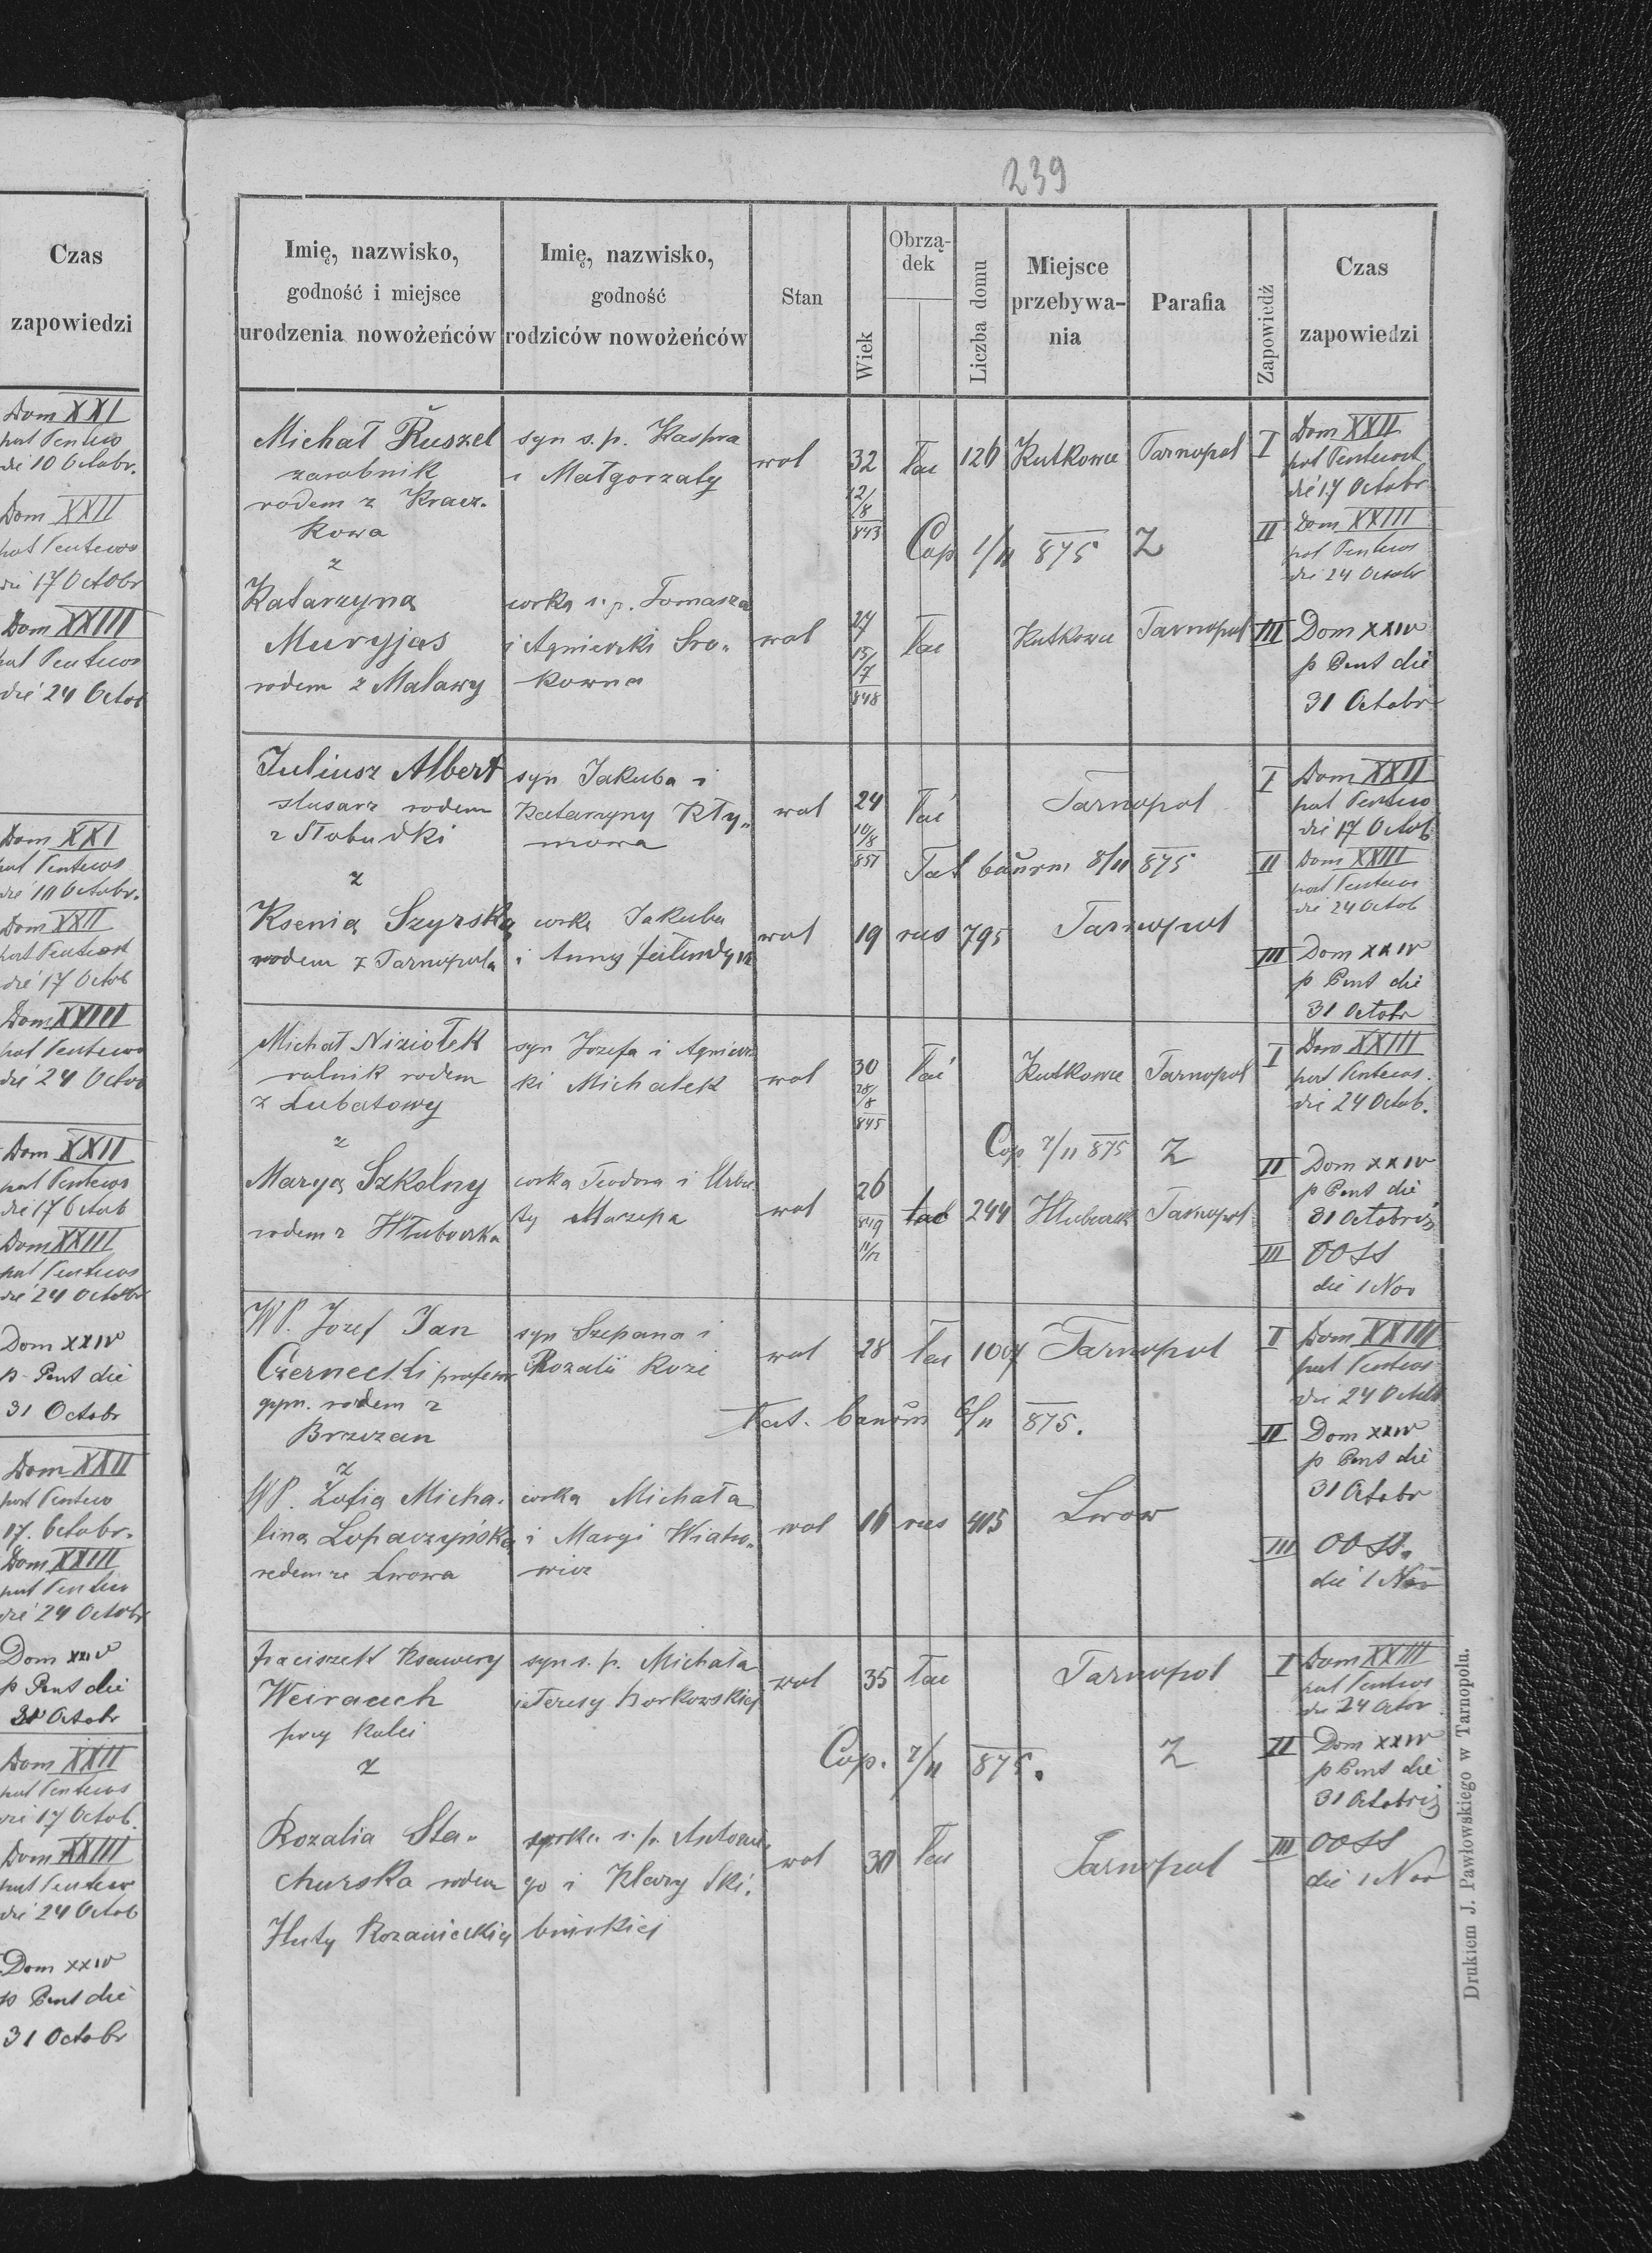 Czas
zapowiedzi
Dom XXI
post Pentecos
die 10 Octobr.
Dom XXII
post Pentecos
die 17 Octobr
Dom XXIII
post Pentecos
die 24 Octob
Dom XXI
post Pentecos
die 10 Octobr.
Dom XXII
post Pentecost
die 17 Octob
Dom XXIII
post Pentecos
die 24 Octob
Dom XXII
post Pentecos
die 17 Octob
Dom XXIII
post Pentecos
die 24 Octobr
Dom XXIV
p Pent die
31 Octobr
Dom XXII
post Pentecos
17. Octobr.
Dom XXIII
post Pentecos
die 24 Octobr
Dom XXIV
p Pent die
31 Octobr
Dom XXII
post Pentecos
die 17 Octob.
Dom XXIII
post Pentecos
die 24 Octob
Dom XXIV
p Pent die
31 Octobr
239
Imię, nazwisko,
godność i miejsce
urodzenia nowożeńców
Imię, nazwisko,
godność
rodziców nowożeńców
Stan
Wiek
Obrzą-
dek
Liczba domu
Miejsce
przebywa-
nia
Parafia
Zapowiedź
Czas
zapowiedzi
Michał Ruszel syn s. p. Kaspra wol 32 łac 126 Kutkowce Tarnopol I Dom XXII
zarobnik i Małgorzaty post Pentecost
rodem z Kracz- 12/8 die 17 Octobr
kowa 843 Cop 1/11 875 Z II Dom XXIII
z post Pentecos
die 24 Octobr
Katarzyna corka s. p. Tomasza 27 łac Kutkowce Tarnopol III Dom XXIV
Muryjas i Agnieszki Sro- wol 15/7 p Pent die
rodem z Malawy kowna 848 31 Octobr
Juliusz Albert syn Jakuba i wol 24 łać Tarnopol I Dom XXII
slusarz rodem Katarzyny Kły- 10/8 post Pentecos
z Słobudki mowa 851 die 17 Octob
z Tat bannm 8/11 875 II Dom XXIII
post Pentecos
die 24 Octob
Ksenia Szyrska corka Jakuba wol 19 rus 795 Tarnopol
rodem z Tarnopola i Anny III Dom XXIV
p Pent die
31 Octobr
Michał Niziołek syn Jozefa i Agniesz wol 30 łać Kutkowce Tarnopol I Dom XXIII
rolnik rodem ki Michałek 28/8 post Pentecos.
z Lubatowy 845 die 24 Octob.
z Cop. 7/11 875 Z II Dom XXIV
Marya Szkolny corka Teodora i wol 26 łac 244 Hłuboczek Tarnopol p Pent die
rodem z Hłuboczka ty Mazepa 849 31 Octobris
11/12 III OOSS
die 1 Nov
WP. Jozef Jan syn Szepana i wol 28 łac 1007 Tarnopol I Dom XXIII
Czernecki profesor Rozalii Kozi post Pentecos
gym. rodem z die 24 Octob
Brzezan Tat. bannm 6/11 875. II Dom XXIV
z p Pent die
31 Octobr
WP. Zofia Micha- corka Michała wol 16 rus 405 Lwow
lina Lopaczyńska i Maryi Wiatro- III OOSS.
rodem ze Lwowa wicz die 1 Nov
Fraciszek Ksawery syn s. p. Michała wol 35 łac Tarnopol I Dom XXIII
Weirauch i Teresy Borkowskiej post Pentecos
przy kolei die 24 Octob
z Cop. 7/11 875. Z II Dom XXIV
p Pent die
31 Octobris
Rozalia Sta- corka s. p. Antonie- wol 30 łac Tarnopol III OOSS
churska rodem go i Klary Ski- die 1 Nov
Huty Rozanieckiej bińskiej
Drukiem J. Pawłowskiego w Tarnopolu.